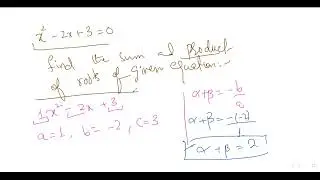 x² - 2x + 3 = 0
find the sum and product
of roots of given equation:-
1x² - 2x + 3
a = 1, b = -2, c = 3
α + β = -b/a
α + β = -(-2)/1
α + β = 2